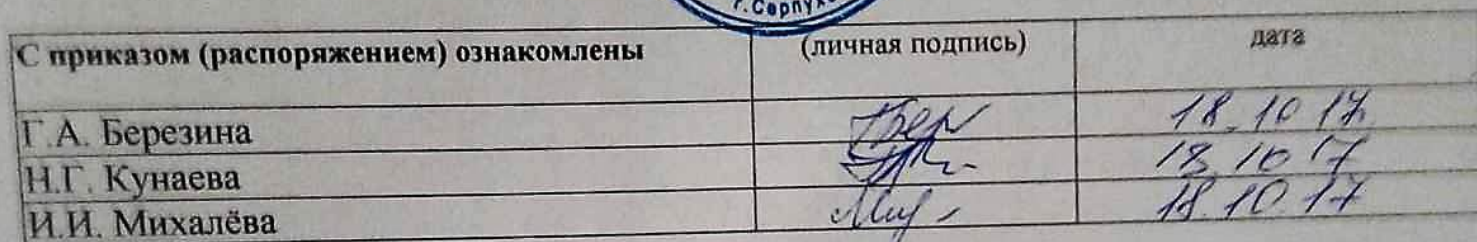 г.Серпух
С приказом (распоряжением) ознакомлены (личная подпись) дата
Г.А. Березина 18.10 17
Н.Г. Кунаева 18 10 17
И.И. Михалёва 18.10.17